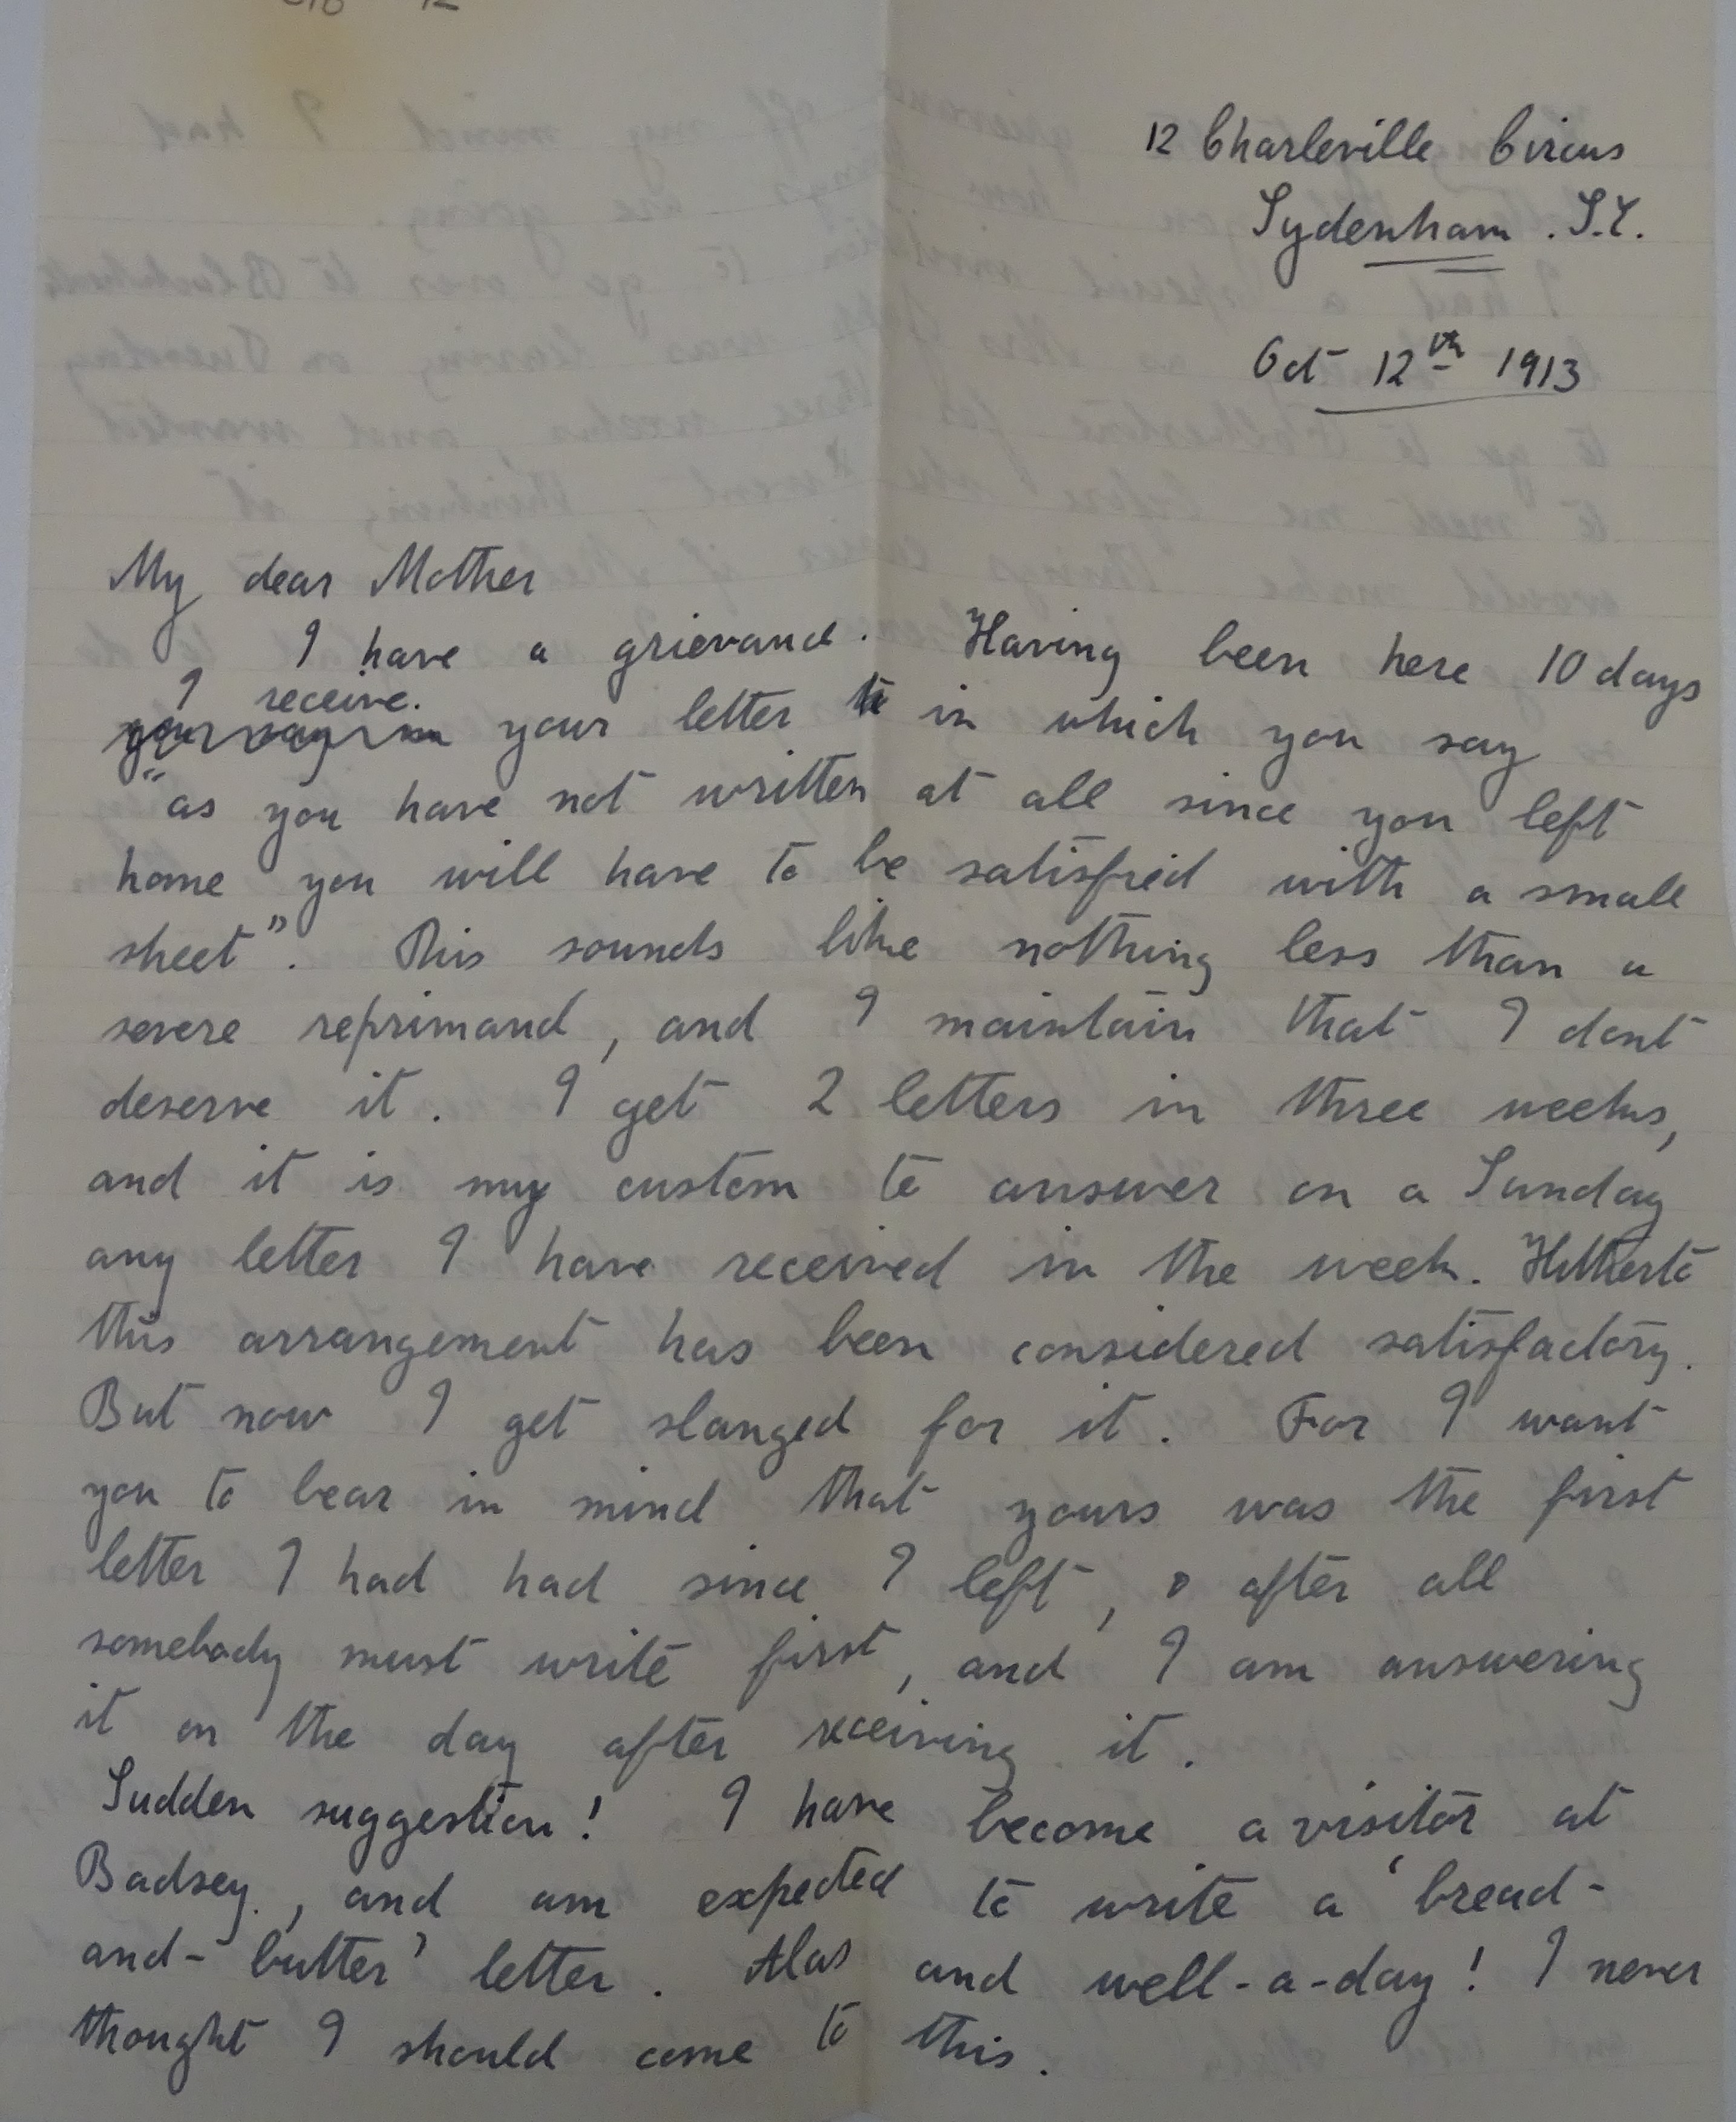 12 Charleville Circus
Sydenham. S.E.
Oct 12th 1913
My dear Mother
I have a grievance. Having been here 10 days
I receive.
your letter in which you say
"as you have not written at all since you left
home you will have to be satisfied with a small
sheet". This sounds like nothing less than a
severe reprimand, and I maintain that I dont
deserve it. I get 2 letters in three weeks,
and it is my custom to answer on a Sunday
any letter I have received in the week. Hitherto
this arrangement has been considered satisfactory.
But now I get slanged for it. For I want
you to bear in mind that yours was the first
letter I had had since I left, & after all
somebody must write first, and I am answering
it on the day after receiving it.
Sudden suggestion! I have become a visitor at
Badsey, and am expected to write a 'bread-
and-butter' letter. Alas and well-a-day! I never
thought I should come to this.